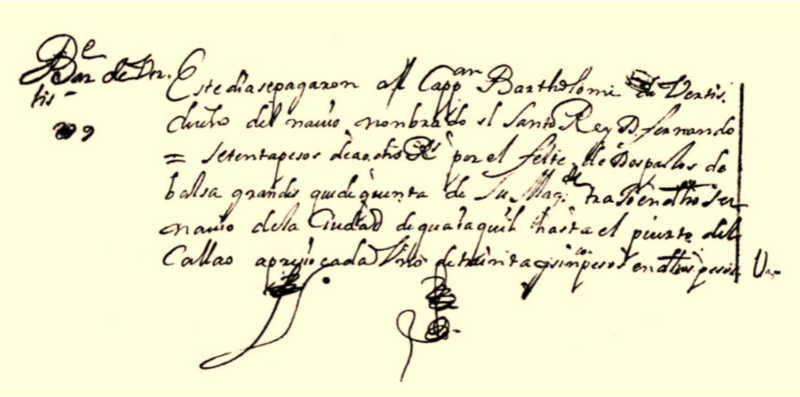 Bar de Ver
tis
Este dia se pagaron al Cappan Bartholome de Vertis
dueño del nauio nombrado el Santo Rey D. fernando
= setenta pesos de a ocho Rs por el flete de Dos palos de
balsa grandes que de quenta de Su Magd trajo en dho Su
nauio de la Ciudad de guaiaquil hasta el puerto del
Callao a preçio cada Uno de treinta y sinco pesos en dhos pesos